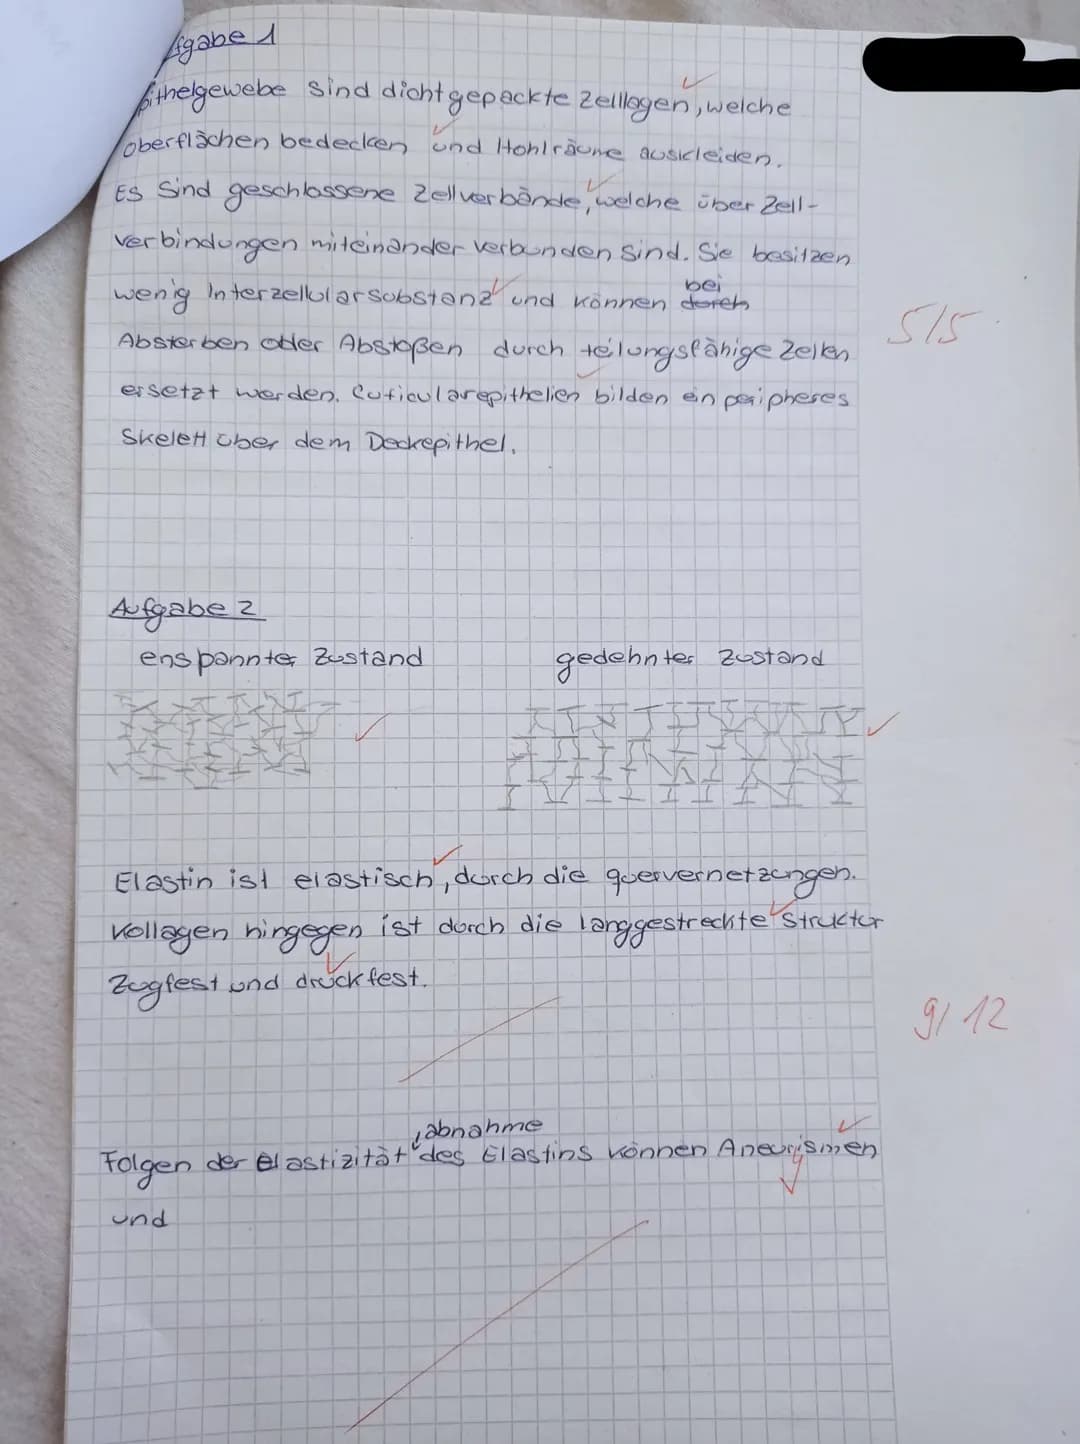 fgabe 1
pithelgewebe sind dicht gepackte Zelllagen, welche
oberflächen bedecken und Hohlräume auskleiden.
Es sind geschlossene Zellverbände, welche über Zell-
verbindungen miteinander verbunden sind. Sie besitzen
wenig Interzellularsubstanz und können durch bei
Absterben oder Abstoßen durch teilungsfähige Zellen
ersetzt werden. Cuticularepithelien bilden ein peripheres
Skelett über dem Deckepithel.
5/5
Aufgabe 2
enspannter Zustand gedehnter Zustand
Elastin ist elastisch, durch die quervernetzungen.
Kollagen hingegen ist durch die langgestreckte Struktur
Zugfest und druckfest.
9/12
Folgen der Elastizität abnahme des Elastins können Aneurismen
y
und